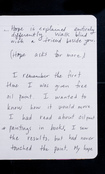 Hope is explained entirely
differently. Walls blind
with a friend inside you
(Hope asks for more)
I remember the first
time I was given free
oil paint. I wanted to
know how it would move
I had read about oil
paintings in books, I saw
the results, but had never
touched the paint. My hope